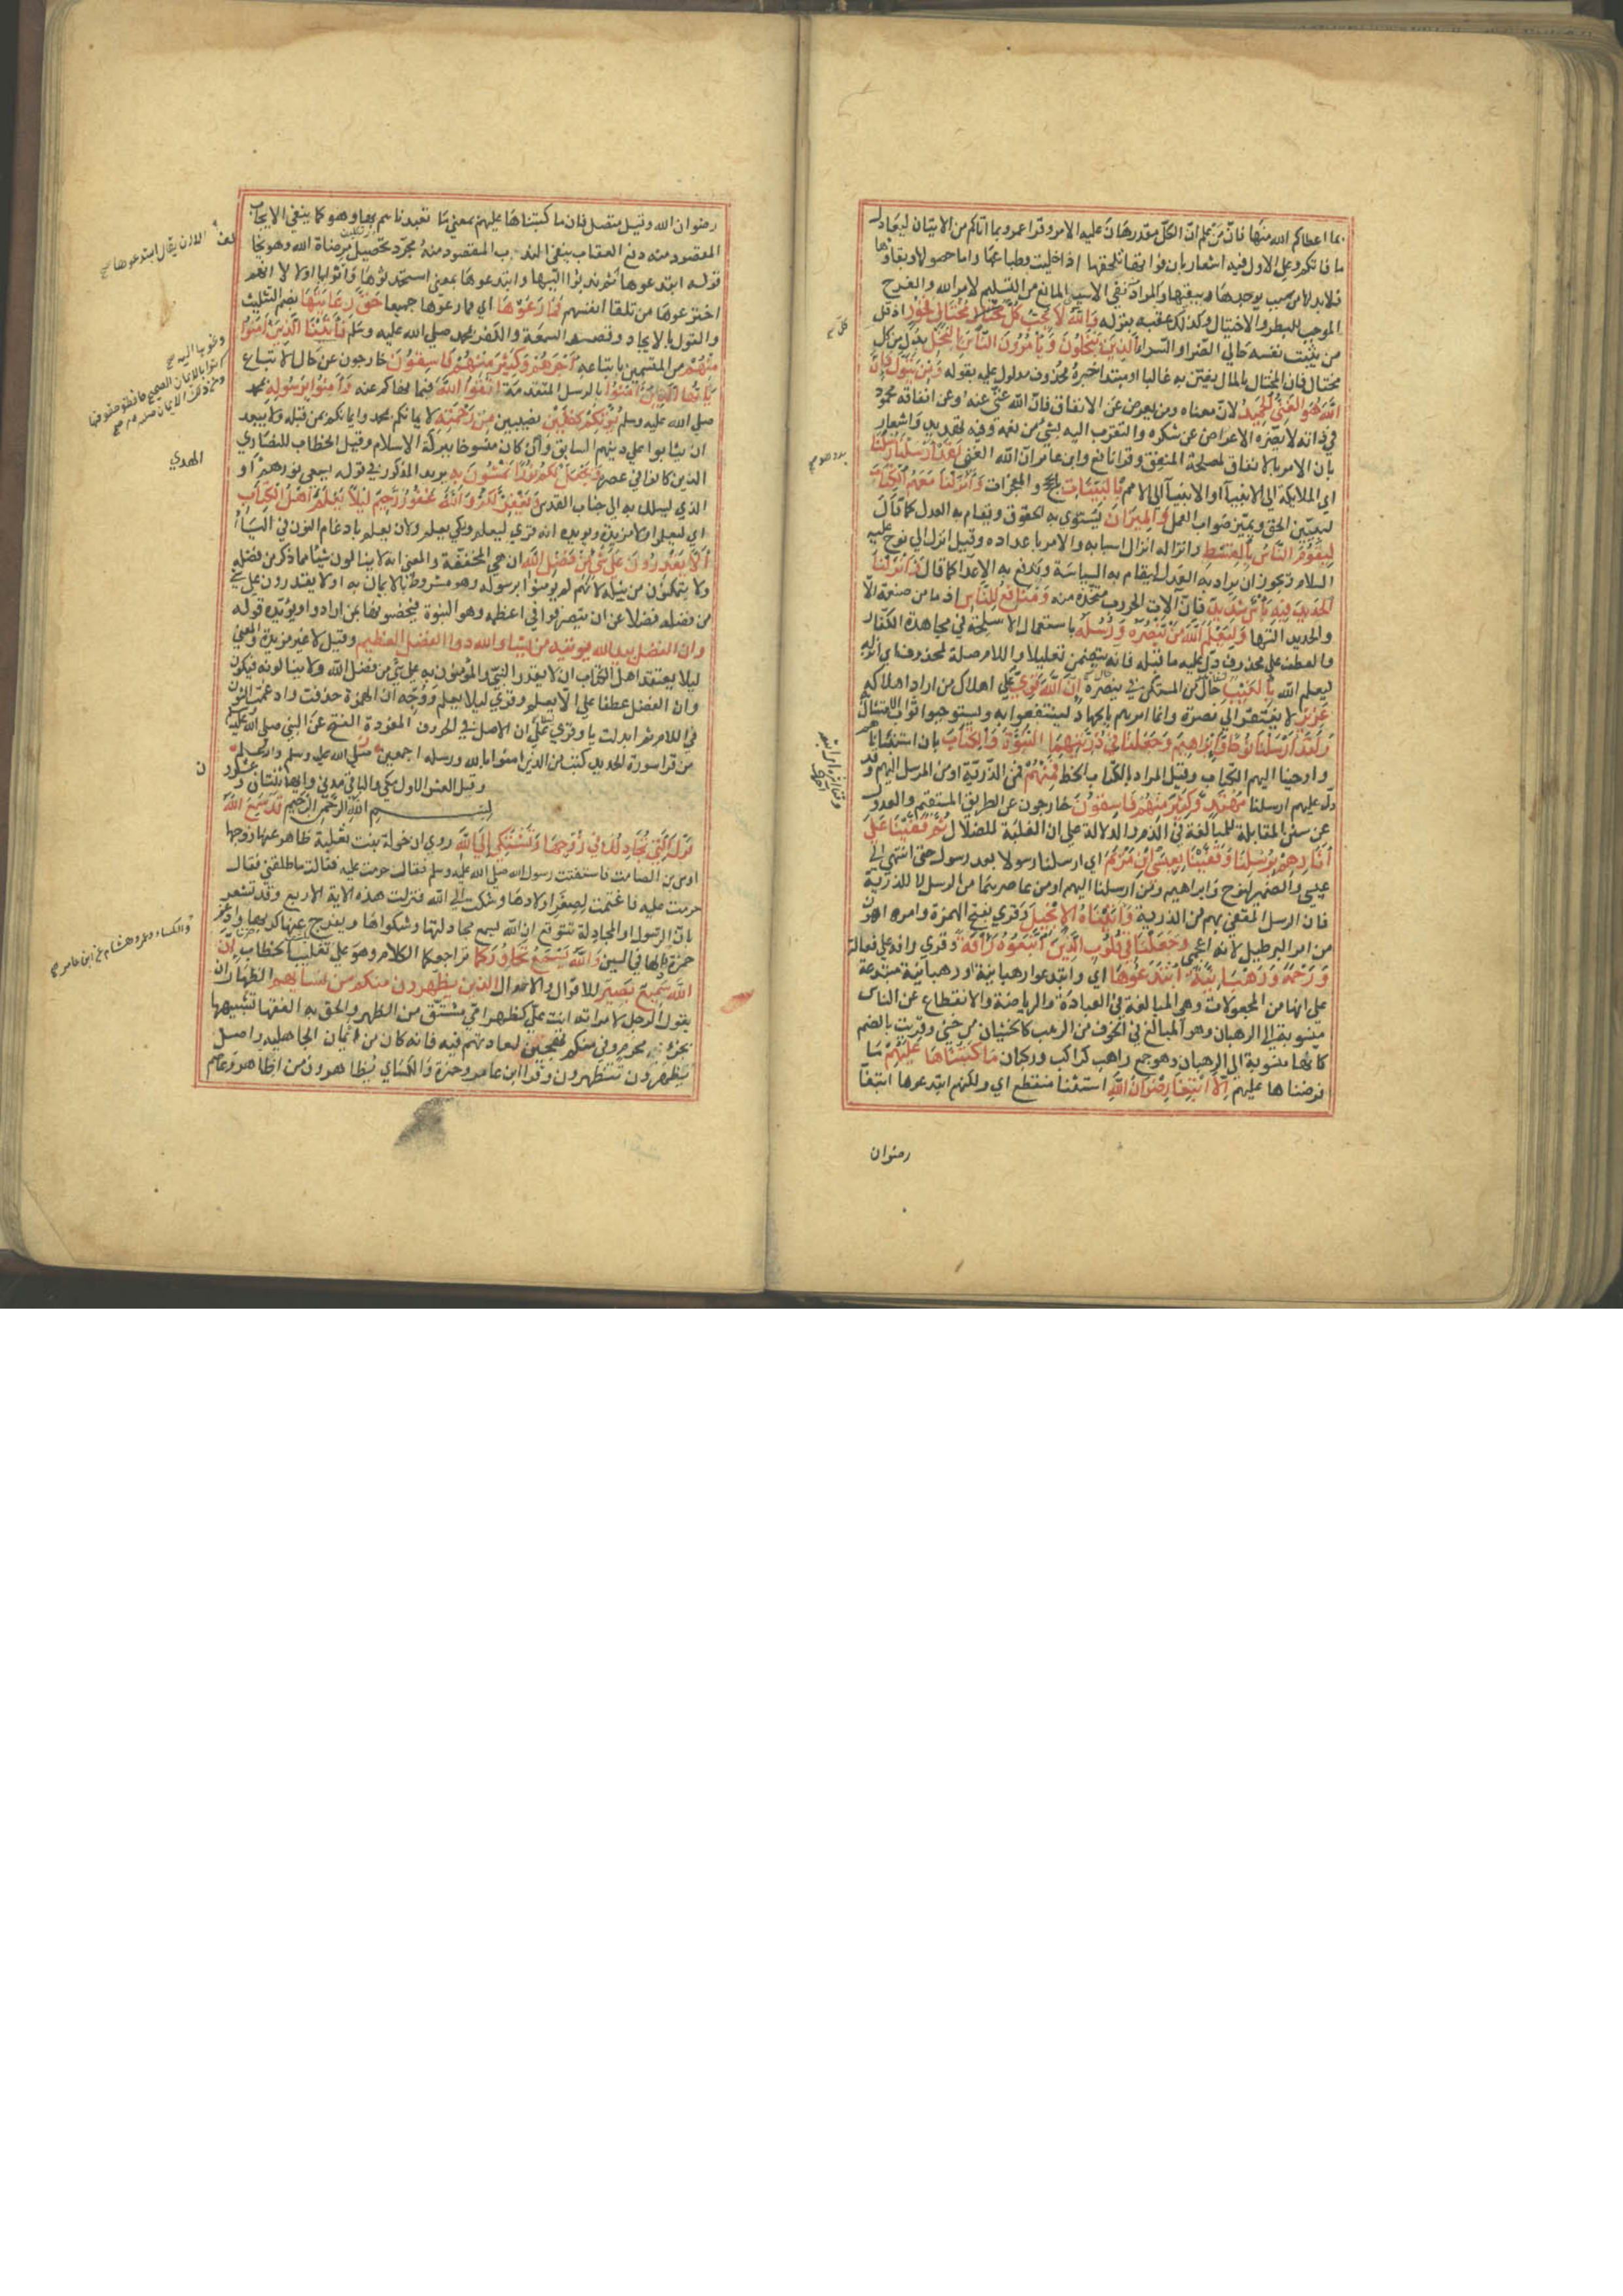 بما اعطاكم الله منها فان من علم ان الكل مقدر هان عليه الامر وقرا ابو عمرو بما اتاكم من الاتيان ليعادل
ما فاتكم وعلى الاول فيه اشعار بان فواتها يلحقها اذا خليت وطباعها واما حصولها وبقاؤها
فلا بد لهما من سبب يوجدها ويبقيها والمراد نفي الاسى المانع من التسليم لامر الله والفرح
الموجب للبطر والاختيال ولذلك عقبه بقوله والله لا يحب كل مختال فخور اذ قل
من يثبت نفسه حالي الضرا والسرا الذين يبخلون ويامرون الناس بالبخل بدل من كل
مختال فان المختال بالمال يضن به غالبا او مبتدا خبره محذوف مدلول عليه بقوله ومن يتول فان
الله هو الغني الحميد لان معناه ومن يعرض عن الانفاق فان الله غني عنه وعن انفاقه محمود
في ذاته لا يضره الاعراض عن شكره والتقرب اليه بشئ من نعمه وفيه تهديد واشعار
بان الامر بالانفاق لمصلحة المنفق وقرا نافع وابن عامر ان الله الغني لقد ارسلنا رسلنا
اي الملايكة الى الانبيا او الانبيا الى الامم بالبينات بالحجج والمعجزات وانزلنا معهم الكتاب
ليبين الحق ويميز صواب العمل والميزان ليستوى به الحقوق ويقام به العدل كما قال
ليقوم الناس بالقسط وانزاله انزال اسبابه والامر باعداده وقيل انزل الى نوح عليه
السلام ويجوز ان يراد به العدل ليقام به السياسة ويدفع به الاعدا كما قال وانزلنا
الحديد فيه باس شديد فان الات الحروب متخذة منه ومنافع للناس اذ ما من صنعة الا
والحديد التها وليعلم الله من ينصره ورسله باستعمال الاسلحة في مجاهدة الكفار
والعطف على محذوف دل عليه ما قبله فانه يتضمن تعليلا واللام صلة لمحذوف اي انزله
ليعلم الله بالغيب حال من المستكن في ينصره ان الله قوي على اهلاك من اراد اهلاكه
عزيز لا يفتقر الى نصرة وانما امرهم بالجهاد لينتفعوا به ويستوجبوا ثواب الامتثال
ولقد ارسلنا نوحا وابراهيم وجعلنا في ذريتهما النبوة والكتاب بان استنبأناهم
واوحينا اليهم الكتاب وقيل المراد بالكتاب الخط فمنهم فمن الذرية او من المرسل اليهم وقد
دل عليهم ارسلنا مهتد وكثير منهم فاسقون خارجون عن الطريق المستقيم والعدول
عن سنن المقابلة للمبالغة في الذم والدلالة على ان الغلبة للضلال ثم قفينا على
اثارهم برسلنا وقفينا بعيسى ابن مريم اي ارسلنا رسولا بعد رسول حتى انتهى الى
عيسى والضمير لنوح وابراهيم ومن ارسلنا اليهم او من عاصرهما من الرسل لا للذرية
فان الرسل المقفى بهم من الذرية واتيناه الانجيل وقرئ بفتح الهمزة وامره اهون
من امر البرطيل لانه اعجمي وجعلنا في قلوب الذين اتبعوه رافة وقرئ رافة على فعالة
ورحمة ورهبانية ابتدعوها اي وابتدعوا رهبانية او رهبانية مبتدعة
على انها من المجعولات وهي المبالغة في العبادة والرياضة والانقطاع عن الناس
منسوبة الى الرهبان وهو المبالغ في الخوف من الرهب كالخشيان من خشي وقريت بالضم
كانها منسوبة الى الرهبان وهو جمع راهب كراكب وركبان ما كتبناها عليهم ما
فرضناها عليهم الا ابتغا رضوان الله استثنا منقطع اي ولكنهم ابتدعوها ابتغا
رضوان
رضوان الله وقيل متصل فان ما كتبناها عليهم بمعنى ما تعبدناهم بها وهو كما ينفي الايجاب
المقصود منه دفع العقاب ينفي الندب المقصود منه مجرد تحصيل مرضاة الله وهو يخا
قوله ابتدعوها ثم ندبوا اليها وابتدعوها بمعنى استحدثوها واتوا بها اولا لا انهم
اخترعوها من تلقا انفسهم فما رعوها اي فما رعوها جميعا حق رعايتها بضم التثليث
والقول بالاتحاد وقصد السمعة والكفر بمحمد صلى الله عليه وسلم فاتينا الذين امنوا
منهم من المتسمين باتباعه اجرهم وكثير منهم فاسقون خارجون عن حال الاتباع
يا ايها الذين امنوا بالرسل المتقدمة اتقوا الله فيما نهاكم عنه وامنوا برسوله محمد
صلى الله عليه وسلم يؤتكم كفلين نصيبين من رحمته لايمانكم بمحمد وايمانكم بمن قبله ولا يبعد
ان يثابوا على دينهم السابق وان كان منسوخا ببركة الاسلام وقيل الخطاب للنصارى
الذين كانوا في عصره ويجعل لكم نورا تمشون به يريد المذكور في قوله يسعى نورهم او
الذي يسلك به الى جناب القدس ويغفر لكم والله غفور رحيم ليلا يعلم اهل الكتاب
اي ليعلموا ولا مزيدة ويؤيده انه قرئ ليعلم ولكي يعلم ولان يعلم بادغام النون في اليا
الا يقدرون على شئ من فضل الله ان هي المخففة والمعنى انه لا ينالون شيئا مما ذكر من فضله
ولا يتمكنون من نيله لانهم لم يومنوا برسوله وهو مشروط بالايمان به او لا يقدرون على شئ
من فضله فضلا عن ان يتصرفوا في اعظمه وهو النبوة فيخصوها بمن ارادوا ويؤيده قوله
وان الفضل بيد الله يوتيه من يشا والله ذو الفضل العظيم وقيل لا غير مزيدة والمعنى
ليلا يعتقد اهل الكتاب ان لا يقدر النبي والمؤمنون به على شئ من فضل الله ولا ينالونه فيكون
وان الفضل عطفا على الا يعلم وقرئ ليلا يعلم ووجهه ان الهمزة حذفت وادغمت النون
في اللام ثم ابدلت يا وقرئ على ان الاصل في الحروف المفردة الفتح عن النبي صلى الله عليه وسلم
من قرا سورة الحديد كتب من الذين امنوا بالله ورسله اجمعين
وقيل العشر الاول مكي والباقي مدني وايها اثنتان وعشرون
بسم الله الرحمن الرحيم قد سمع الله
قول التي تجادلك في زوجها وتشتكي الى الله روي ان خولة بنت ثعلبة ظاهر عنها زوجها
اوس بن الصامت فاستفتت رسول الله صلى الله عليه وسلم فقال حرمت عليه فقالت ما طلقني فقال
حرمت عليه فاغتمت لصغر اولادها وشكت الى الله فنزلت هذه الاية الاربع وقد تشعر
بان الرسول او المجادلة تتوقع ان الله يسمع مجادلتها وشكواها ويفرج عنها كربها وادغم
حمزة دالها في السين والله يسمع تحاوركما تراجعكما الكلام وهو على تغليب الخطاب ان
الله سميع بصير للاقوال والاحوال الذين يظهرون منكم من نسايهم الظهار ان
يقول الرجل لامراته انت علي كظهر امي مشتق من الظهر والحق به الفقها تشبيهها
بجزء محرم وفي منكم تهجين لعادتهم فيه فانه كان من ايمان الجاهلية واصل
يظهرون يتظهرون وقرا ابن عامر وحمزة والكساي يظاهرون من اظاهر وعاصم
المهدي
والكساء وعمرو هشام عن ابن عامر صح